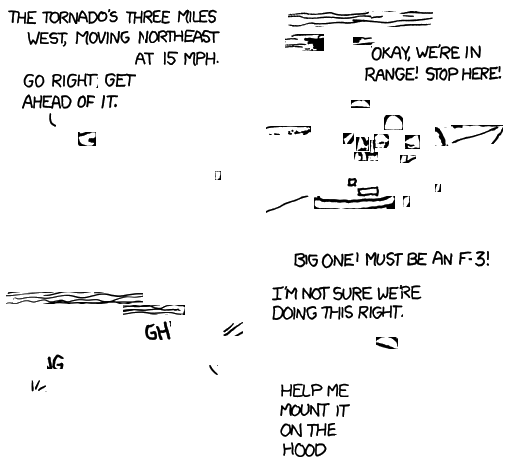 THE TORNADO'S THREE MILES
WEST, MOVING NORTHEAST
AT 15 MPH.
GO RIGHT, GET
AHEAD OF IT.
OKAY, WE'RE IN
RANGE! STOP HERE!
BIG ONE! MUST BE AN F-3!
I'M NOT SURE WE'RE
DOING THIS RIGHT.
HELP ME
MOUNT IT
ON THE
HOOD